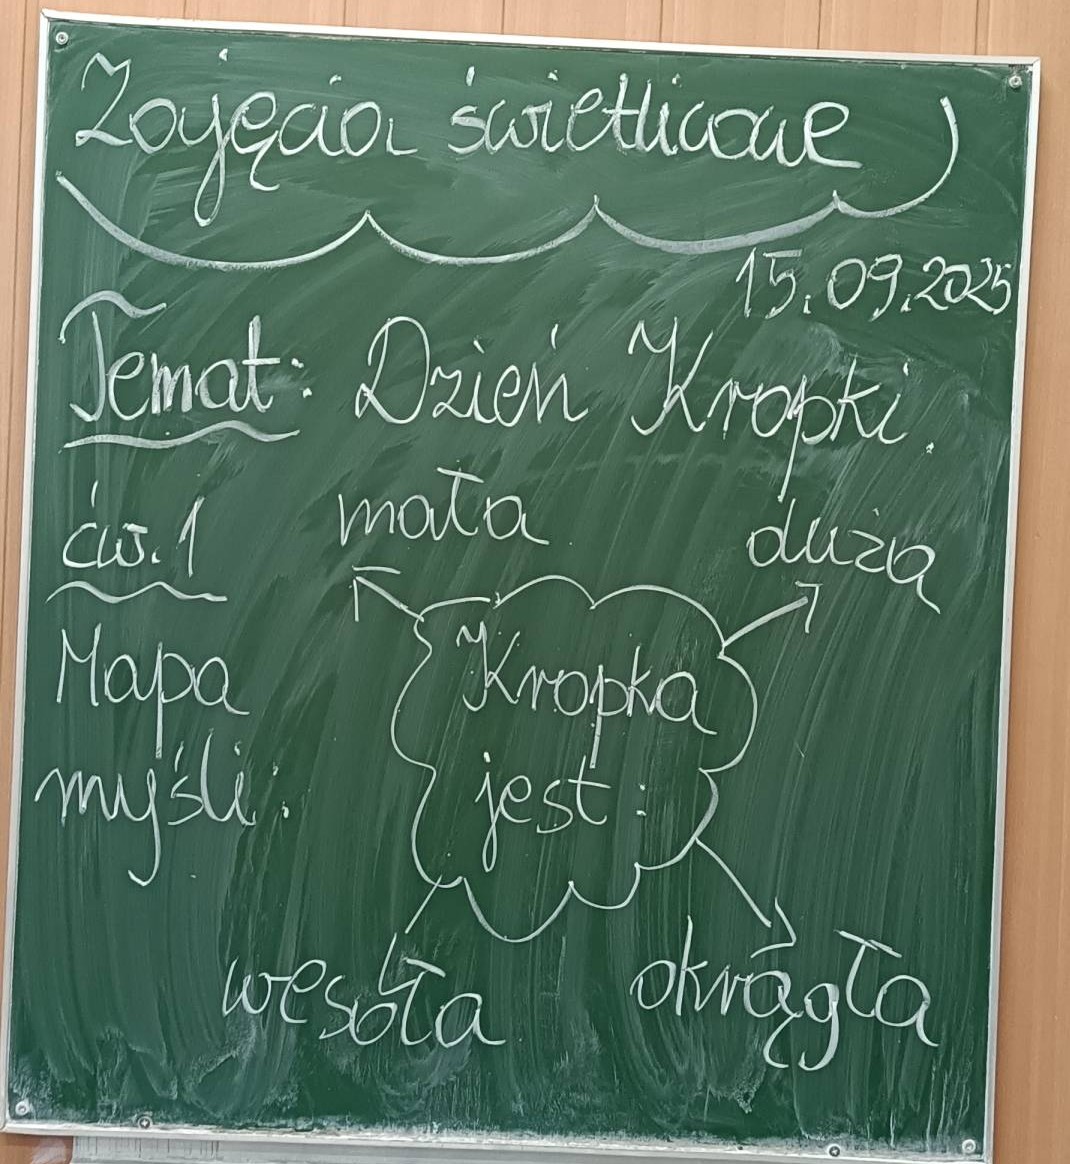 Zajęcia świetlicowe
15.09.2025
Temat: Dzień Kropki.
ćw. 1
mała
duża
Mapa
myśli:
Kropka
jest:
wesoła
okrągła